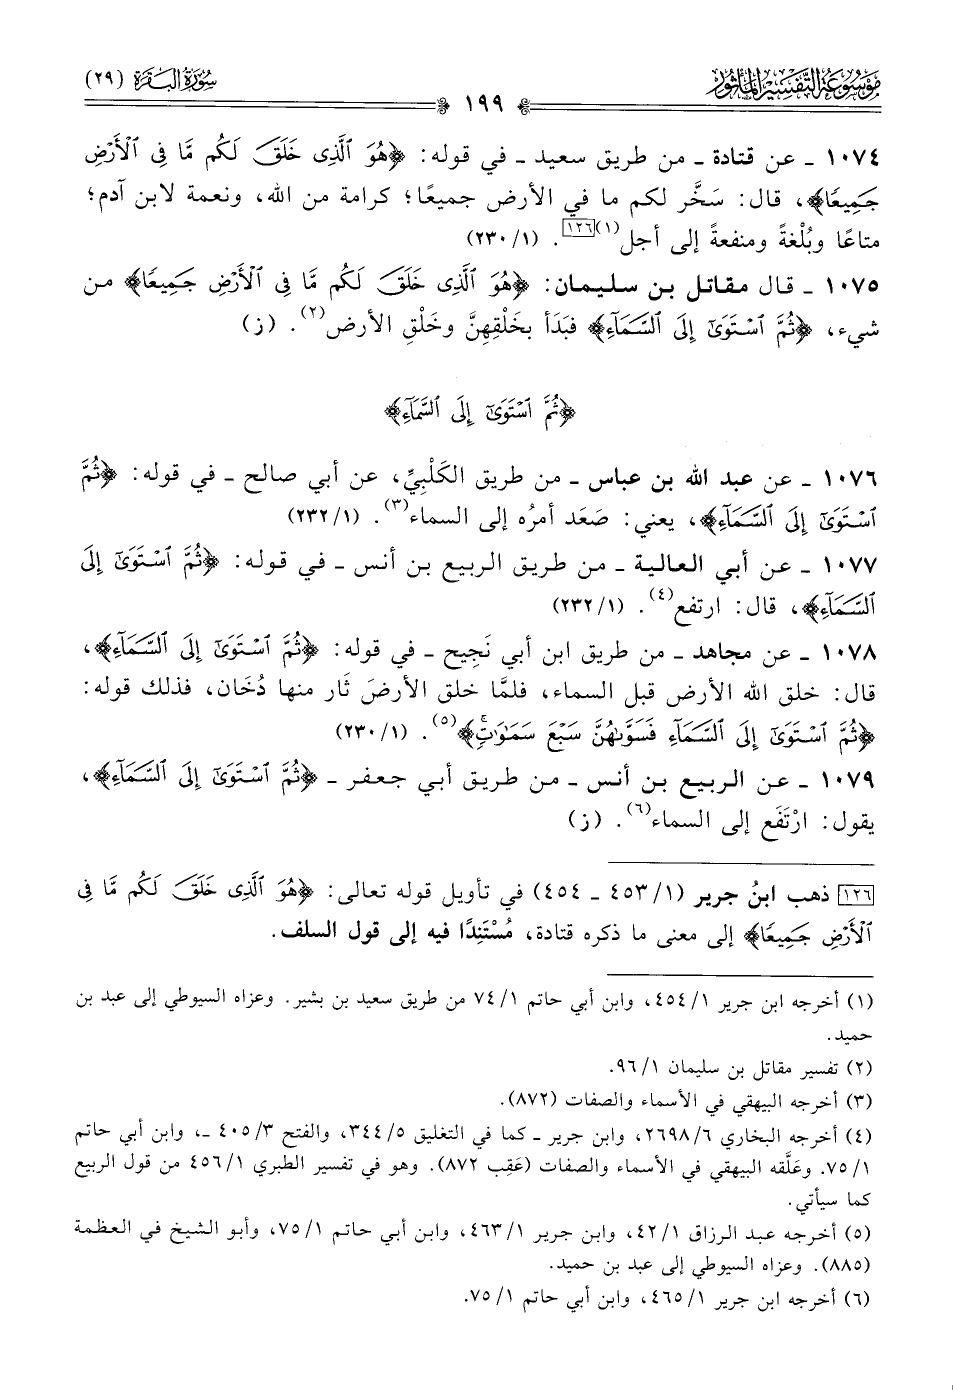 موسوعة التفسير المأثور
سورة البقرة (٢٩)
١٩٩
١٠٧٤ ـ عن قتادة ـ من طريق سعيد ـ في قوله: ﴿هُوَ ٱلَّذِى خَلَقَ لَكُم مَّا فِى ٱلْأَرْضِ
جَمِيعًا﴾، قال: سَخَّر لكم ما في الأرض جميعًا؛ كرامة من الله، ونعمة لابن آدم؛
متاعًا وبُلْغةً ومنفعةً إلى أجل(١)[١٢٦]. (١/ ٢٣٠)
١٠٧٥ ـ قال مقاتل بن سليمان: ﴿هُوَ ٱلَّذِى خَلَقَ لَكُم مَّا فِى ٱلْأَرْضِ جَمِيعًا﴾ من
شيء، ﴿ثُمَّ ٱسْتَوَىٰٓ إِلَى ٱلسَّمَآءِ﴾ فبَدَأ بخَلْقِهِنَّ وخَلْقِ الأرض(٢). (ز)
﴿ثُمَّ ٱسْتَوَىٰٓ إِلَى ٱلسَّمَآءِ﴾
١٠٧٦ ـ عن عبد الله بن عباس ـ من طريق الكَلْبِيِّ، عن أبي صالح ـ في قوله: ﴿ثُمَّ
ٱسْتَوَىٰٓ إِلَى ٱلسَّمَآءِ﴾، يعني: صَعَد أمرُه إلى السماء(٣). (١/ ٢٣٢)
١٠٧٧ ـ عن أبي العالية ـ من طريق الربيع بن أنس ـ في قوله: ﴿ثُمَّ ٱسْتَوَىٰٓ إِلَى
ٱلسَّمَآءِ﴾، قال: ارتفع(٤). (١/ ٢٣٢)
١٠٧٨ ـ عن مجاهد ـ من طريق ابن أبي نَجِيح ـ في قوله: ﴿ثُمَّ ٱسْتَوَىٰٓ إِلَى ٱلسَّمَآءِ﴾،
قال: خلق الله الأرض قبل السماء، فلمَّا خلق الأرضَ ثَار منها دُخَان، فذلك قوله:
﴿ثُمَّ ٱسْتَوَىٰٓ إِلَى ٱلسَّمَآءِ فَسَوَّىٰهُنَّ سَبْعَ سَمَٰوَٰتٍۚ﴾(٥). (١/ ٢٣٠)
١٠٧٩ ـ عن الربيع بن أنس ـ من طريق أبي جعفر ـ ﴿ثُمَّ ٱسْتَوَىٰٓ إِلَى ٱلسَّمَآءِ﴾،
يقول: ارْتَفَع إلى السماء(٦). (ز)
[١٢٦] ذهب ابنُ جرير (١/ ٤٥٣ ـ ٤٥٤) في تأويل قوله تعالى: ﴿هُوَ ٱلَّذِى خَلَقَ لَكُم مَّا فِى
ٱلْأَرْضِ جَمِيعًا﴾ إلى معنى ما ذكره قتادة، مُسْتَنِدًا فيه إلى قول السلف.
(١) أخرجه ابن جرير ١/ ٤٥٤، وابن أبي حاتم ١/ ٧٤ من طريق سعيد بن بشير. وعزاه السيوطي إلى عبد بن
حميد.
(٢) تفسير مقاتل بن سليمان ١/ ٩٦.
(٣) أخرجه البيهقي في الأسماء والصفات (٨٧٢).
(٤) أخرجه البخاري ٦/ ٢٦٩٨، وابن جرير ـ كما في التغليق ٥/ ٣٤٤، والفتح ٣/ ٤٠٥ ـ، وابن أبي حاتم
١/ ٧٥. وعَلَّقه البيهقي في الأسماء والصفات (عَقِب ٨٧٢). وهو في تفسير الطبري ١/ ٤٥٦ من قول الربيع
كما سيأتي.
(٥) أخرجه عبد الرزاق ١/ ٤٢، وابن جرير ١/ ٤٦٣، وابن أبي حاتم ١/ ٧٥، وأبو الشيخ في العظمة
(٨٨٥). وعزاه السيوطي إلى عبد بن حميد.
(٦) أخرجه ابن جرير ١/ ٤٦٥، وابن أبي حاتم ١/ ٧٥.